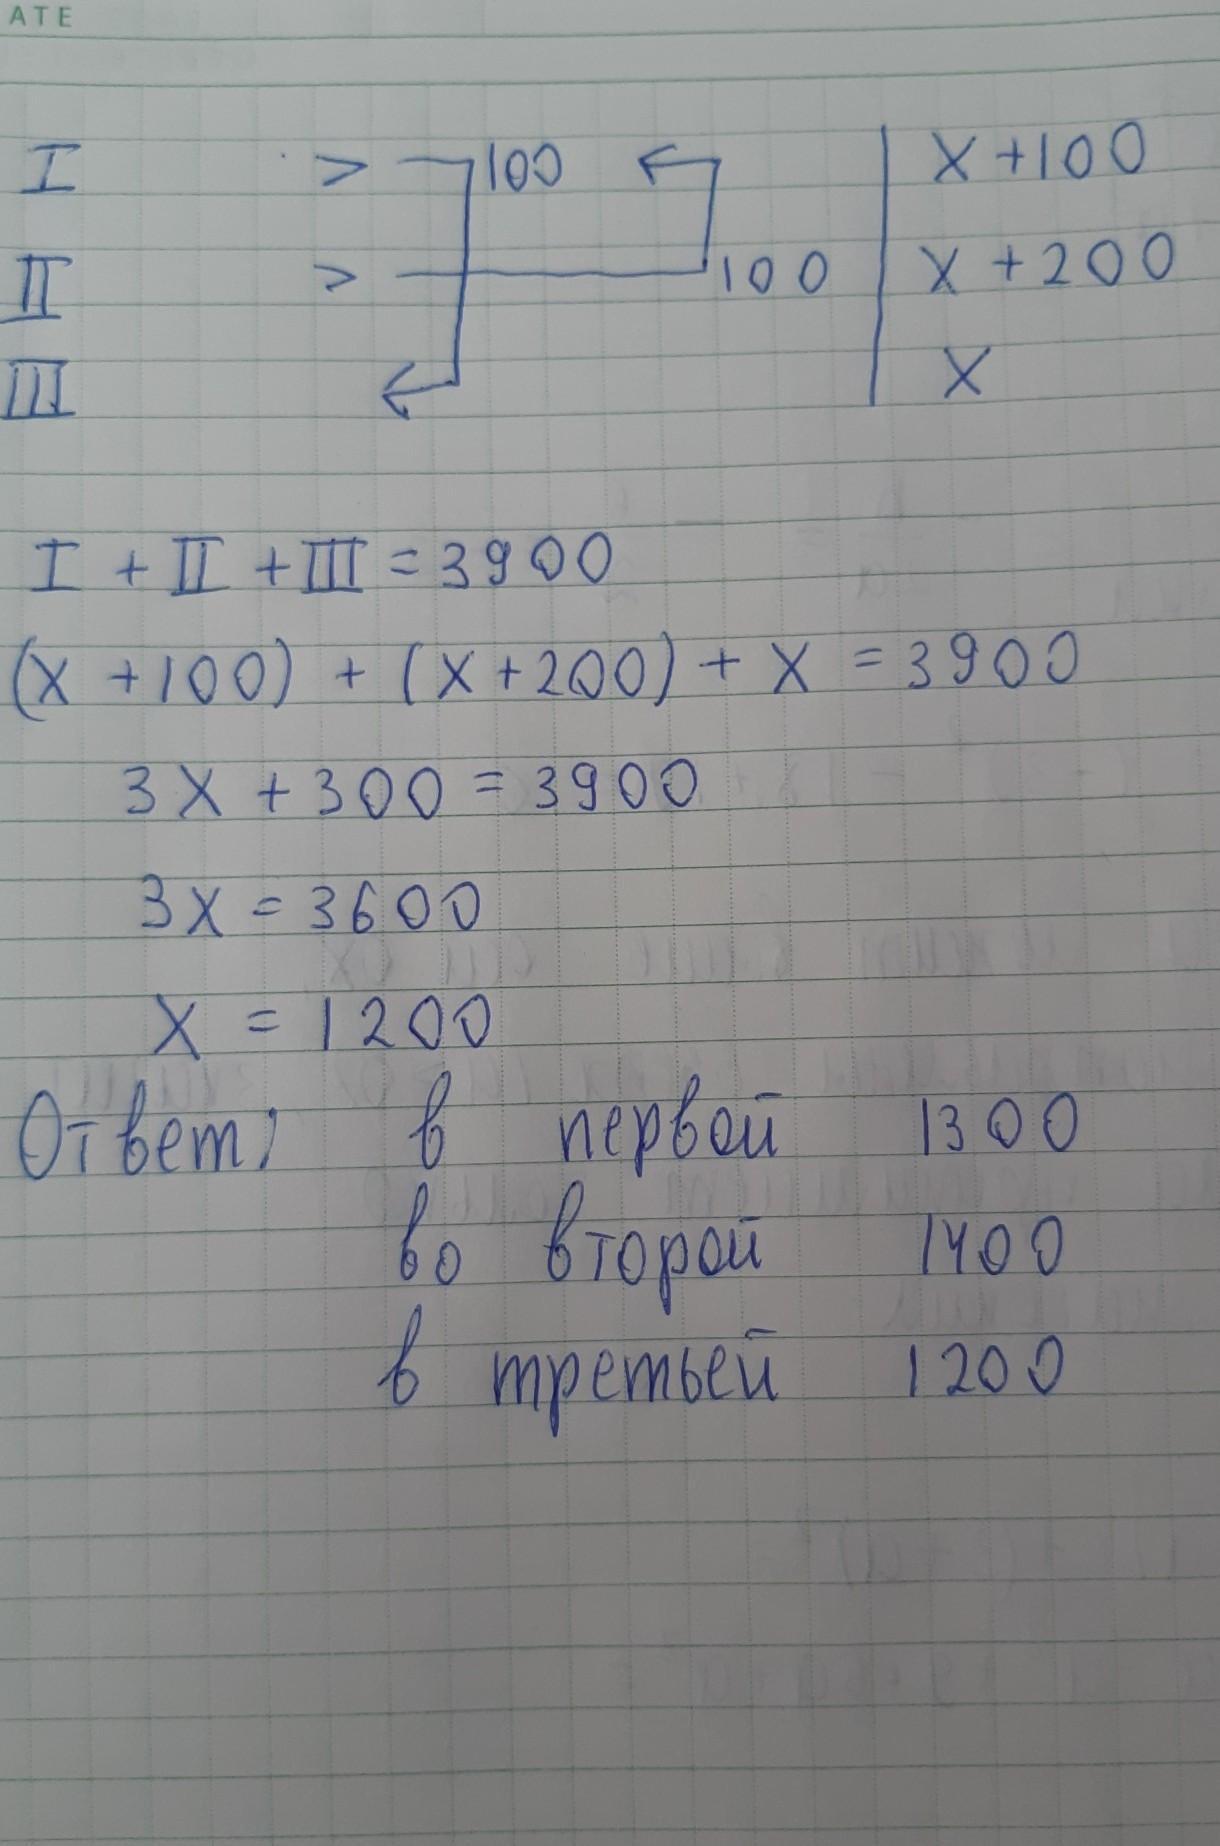 ATE
I > 100 x+100
II > 100 x+200
III x
I + II + III = 3900
(x +100) + (x+200) + x = 3900
3x + 300 = 3900
3x = 3600
x = 1200
Ответ: в первой 1300
во второй 1400
в третьей 1200